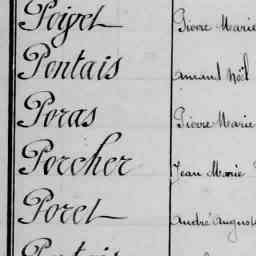 Poipel Pierre Marie
Pontais Amand Noël
Poras Pierre Marie
Porcher Jean Marie
Porel André August